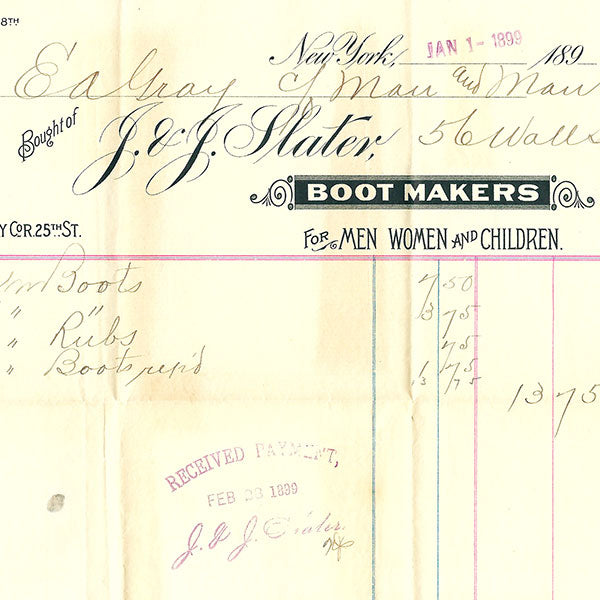 8TH
New York, JAN 1 - 1899 189
Ed Gray c/ Man and Man
Bought of J. & J. Slater, 56 Wall S
BOOT MAKERS
Y COR. 25TH ST. FOR MEN WOMEN AND CHILDREN.
Boots 7 50
" " 3 75
" Rubs 75
" Boots rep'd 1 75
13 75 13 75
RECEIVED PAYMENT,
FEB 23 1899
J. & J. Slater.